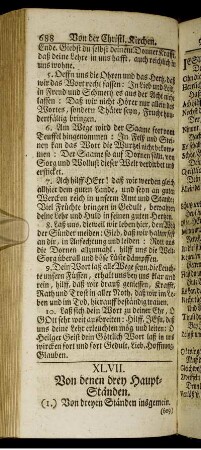 688 Von der Christl. Kirchen.
Ende. Giebst du selbst deinem Donner Krafft,
daß deine Lehre in uns hafft, auch reichlich in
uns wohne.
5. Oeffn uns die Ohren und das Hertz, daß
wir das Wort recht fassen: In Lieb und Leid,
in Freud und Schmertz es aus der Acht nicht
lassen: Daß wir nicht Hörer nur allein des
Wortes, sondern Thäter seyn, Frucht hun-
dertfältig bringen.
6. Am Wege wird der Saame fort vom
Teuffel hingenommen: In Felß und Stei-
nen kan das Wort die Wurtzel nicht bekom-
men: Der Saame so auf Dornen fällt, von
Sorg und Wollust dieser Welt verdirbet und
ersticket.
7. Ach hilff HErr! daß wir werden gleich
allhier dem guten Lande, und seyn an guten
Wercken reich in unserm Amt und Stande,
Viel Früchte bringen in Geduld, bewahren
deine Lehr und Huld in seinem guten Hertzen.
8. Laß uns, dieweil wir leben hier, den Weg
der Sünder meiden: Gieb, daß wir halten fest
an dir, in Anfechtung und Leiden: Rott aus
die Dornen allzumal, hilff uns die Welt-
Sorg überall und böse Lüste dämpffen.
9. Dein Wort laß allewege seyn die Leuch-
te unsern Füssen, erhalt uns bey uns klar und
rein, hilff, daß wir draus geniessen, Krafft,
Rath und Trost in aller Noth, daß wir im Le-
ben und im Tod, hierauf beständig trauen.
10. Laß sich dein Wort zu deiner Ehr, O
GOtt sehr weit ausbreiten: Hilff, JEsu, daß
uns deine Lehr erleuchten mög und leiten: O
Heilger Geist dein Göttlich Wort laß in uns
wircken fort und fort Gedult, Lieb, Hoffnung,
Glauben.
XLVII.
Von denen drey Haupt-
Ständen.
(1.) Von dreyen Ständen insgemein.
(689)